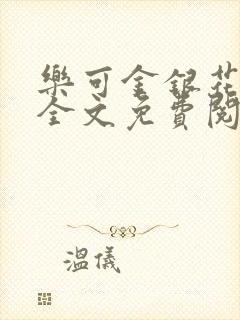 樂可金銀花
全文免費閱
溫儀